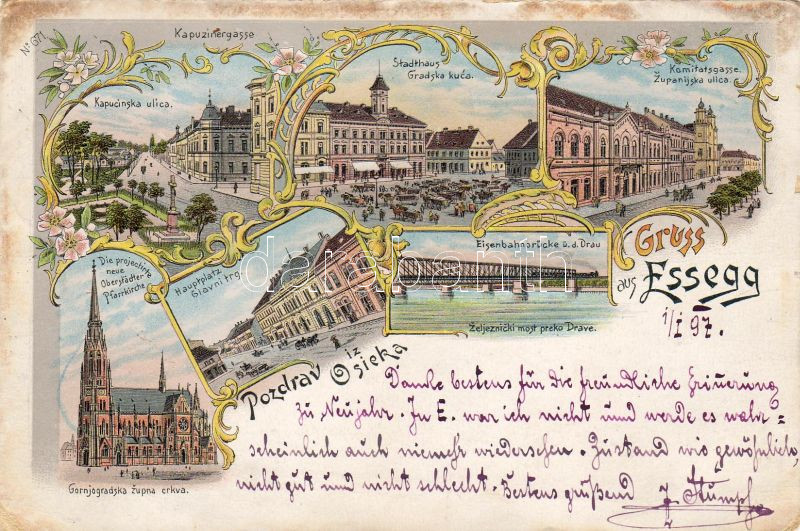 No 671
Kapuzinergasse
Kapucinska ulica.
Stadthaus
Gradska kuća.
Komitatsgasse.
Županijska ulica.
Die projectirte
neue
Oberstädter
Pfarrkirche
Hauptplatz
Glavni trg.
Eisenbahnbrücke ü. d. Drau
Željeznički most preko Drave.
Gruss
aus Essegg
Pozdrav iz Osieka
Gornjogradska župna crkva.
darabanth
1/I 97.
Danke bestens für die freundliche Erinnerung
zu Neujahr. In E. war ich nicht und werde es wahr=
scheinlich auch niemehr wiedersehen. Zustand wie gewöhnlich,
nicht gut und nicht schlecht. Bestens grüßend J. Stumpf